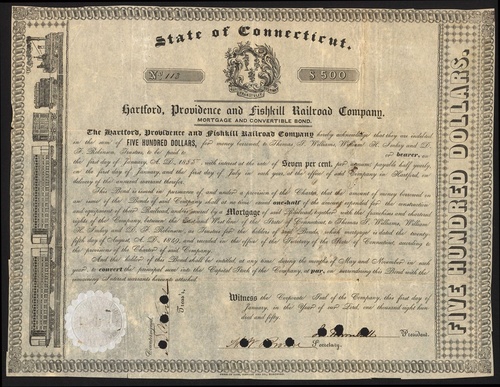 State of Connecticut.
No. 113
$500
Hartford, Providence and Fishkill Railroad Company,
MORTGAGE AND CONVERTIBLE BOND.
The Hartford, Providence and Fishkill Railroad Company hereby acknowledge that they are indebted
in the sum of FIVE HUNDRED DOLLARS, for money borrowed to Thomas S. Williams, William H. Imlay and D.
F. Robinson, Trustees, to be paid to or bearer, on
the first day of January, A. D. 1855 with interest at the rate of Seven per cent. per annum payable half yearly
on the first day of January, and the first day of July in each year, at the office of said Company in Hartford, on
delivery of the warrant annexed therefor.
This Bond is issued in pursuance of, and under a provision of the Charter, that the amount of money borrowed on
the Bonds of said Company shall at no time exceed one half of the money expended for the construction
and equipment of their Railroad, and is secured by a Mortgage of said Railroad, together with the franchises and chartered
of the Company, between the Eastern and West line of the State of Connecticut to Thomas S. Williams, William
H. Imlay and D. F. Robinson, as Trustees for the holders of said Bonds, which mortgage is dated the
fifth day of August A. D. 1849, and recorded in the office of the Secretary of the State of Connecticut, according to
the provisions of the Charter of said Company.
And the holder of this Bond shall be entitled, at any time during the months of May and November in each
year, to convert the principal sum into the Capital Stock of the Company, at par, on surrendering this Bond with the
remaining Interest warrants thereunto attached.
Witness the Corporate Seal of the Company, this first day of
January, in the Year of our Lord, one thousand eight hundred
and fifty.
President.
Secretary.
Countersigned
Treas'r.
FIVE HUNDRED DOLLARS.